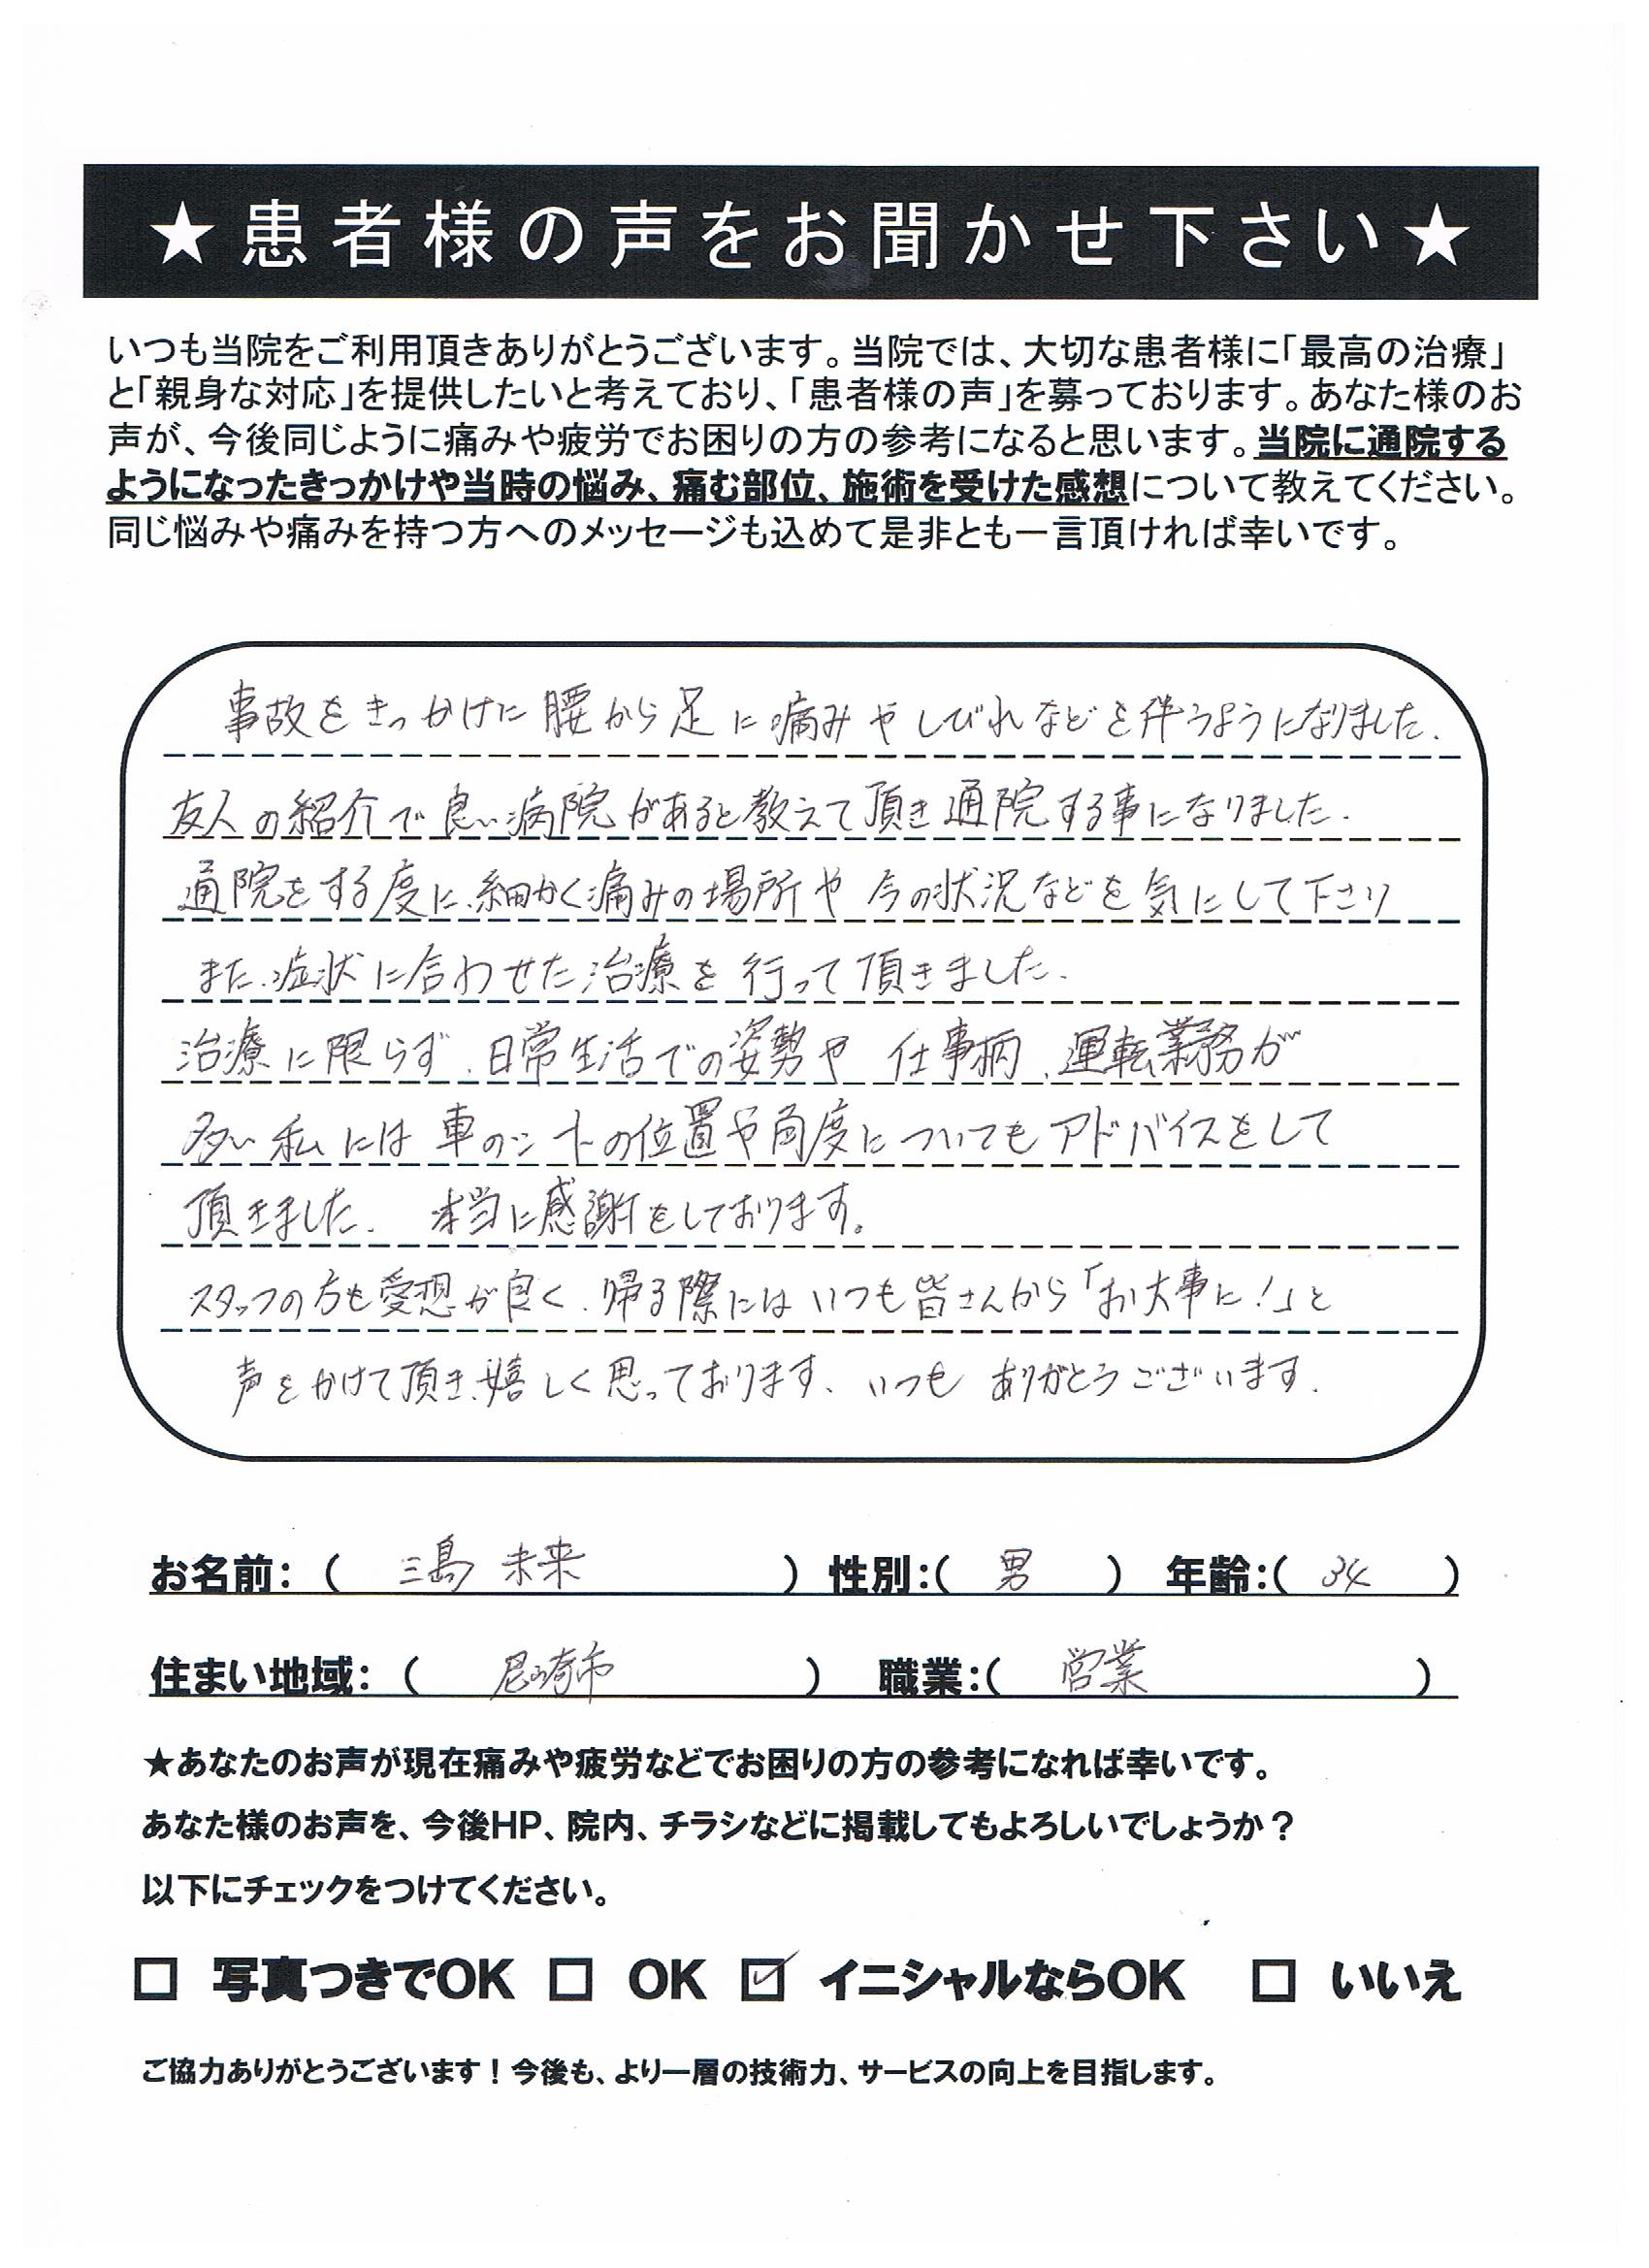 ★患者様の声をお聞かせ下さい★
いつも当院をご利用頂きありがとうございます。当院では、大切な患者様に「最高の治療」
と「親身な対応」を提供したいと考えており、「患者様の声」を募っております。あなた様のお
声が、今後同じように痛みや疲労でお困りの方の参考になると思います。当院に通院する
ようになったきっかけや当時の悩み、痛む部位、施術を受けた感想について教えてください。
同じ悩みや痛みを持つ方へのメッセージも込めて是非とも一言頂ければ幸いです。
事故をきっかけに腰から足に痛みやしびれなどを伴うようになりました.
友人の紹介で良い病院があると教えて頂き通院する事になりました.
通院をする度に、細かく痛みの場所や今の状況などを気にして下さり
また、症状に合わせた治療を行って頂きました.
治療に限らず、日常生活での姿勢や仕事柄、運転業務が
多い私には車のシートの位置や角度についてもアドバイスをして
頂きました. 本当に感謝をしております。
スタッフの方も愛想が良く、帰る際にはいつも皆さんから「お大事に!」と
声をかけて頂き、嬉しく思っております. いつもありがとうございます.
お名前:( 三島 未来 ) 性別:( 男 ) 年齢:( 34 )
住まい地域:( 尼崎市 ) 職業:( 営業 )
★あなたのお声が現在痛みや疲労などでお困りの方の参考になれば幸いです。
あなた様のお声を、今後HP、院内、チラシなどに掲載してもよろしいでしょうか?
以下にチェックをつけてください。
□ 写真つきでOK □ OK ☑ イニシャルならOK □ いいえ
ご協力ありがとうございます!今後も、より一層の技術力、サービスの向上を目指します。